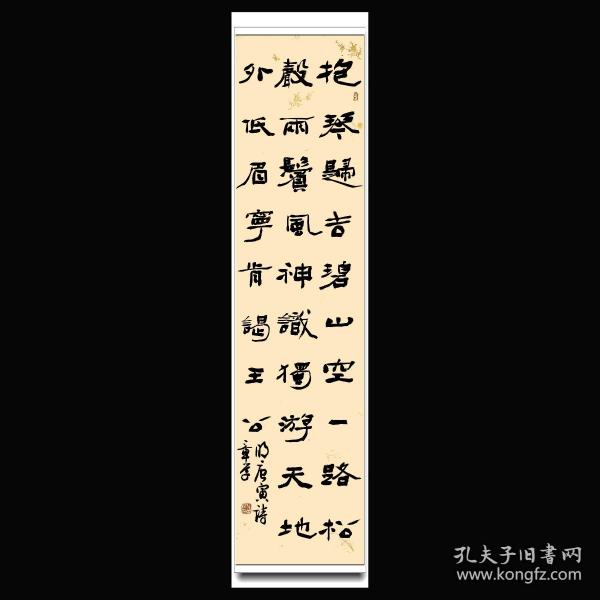 抱琴歸去碧山空一路松
聲雨鬢風神識獨游天地
外低眉寧肯謁王公
明唐寅詩
章草
孔夫子旧书网
www.kongfz.com